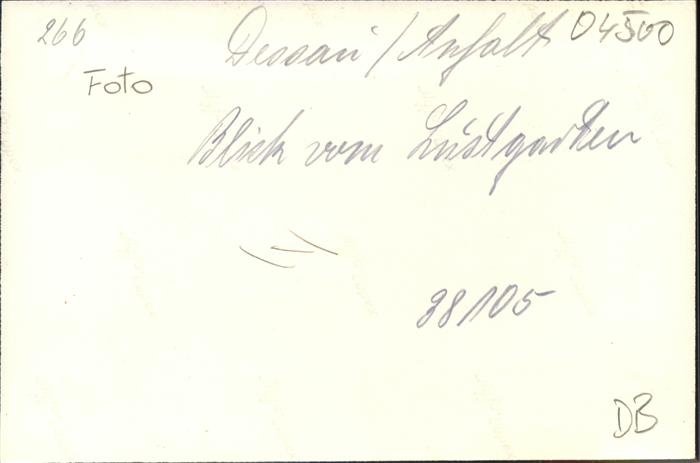 266 Dessau / Anhalt 04500
Foto
Blick vom Lustgarten
38105
DB